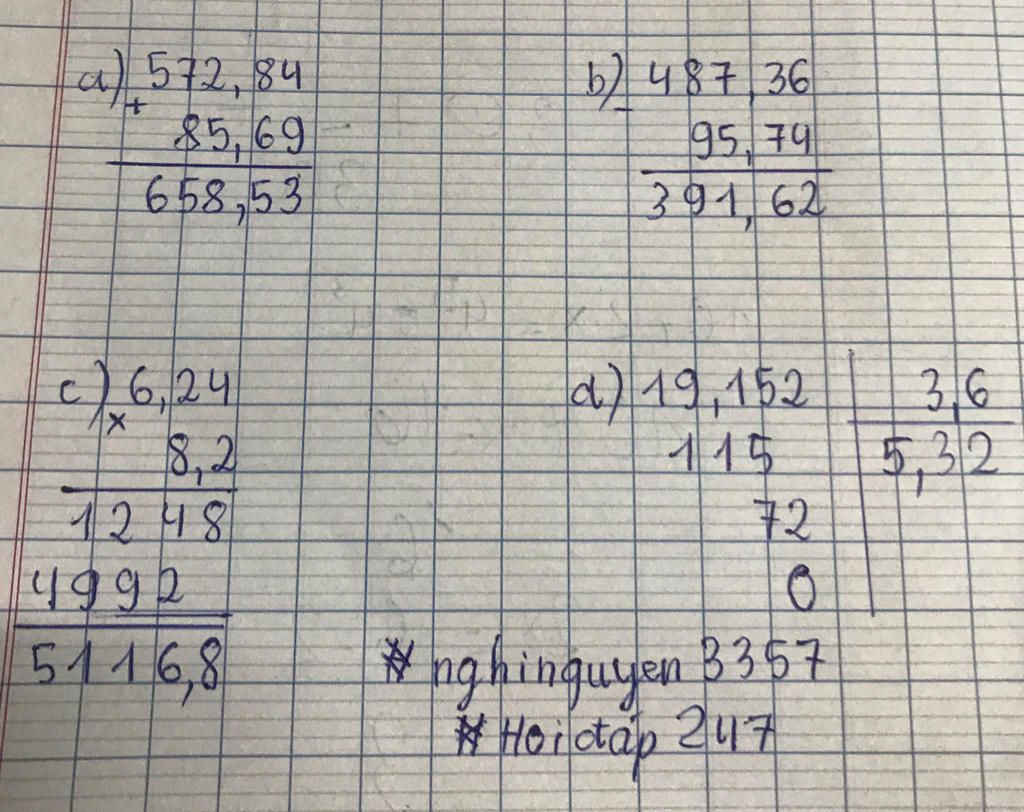 a) 572,84
+
85,69
658,53
b) 487,36
-
95,74
391,62
c) 6,24
x
8,2
1248
4992
5116,8
d) 19,152 3,6
115 5,32
72
0
# nghinguyen 3357
# Hoidap 247